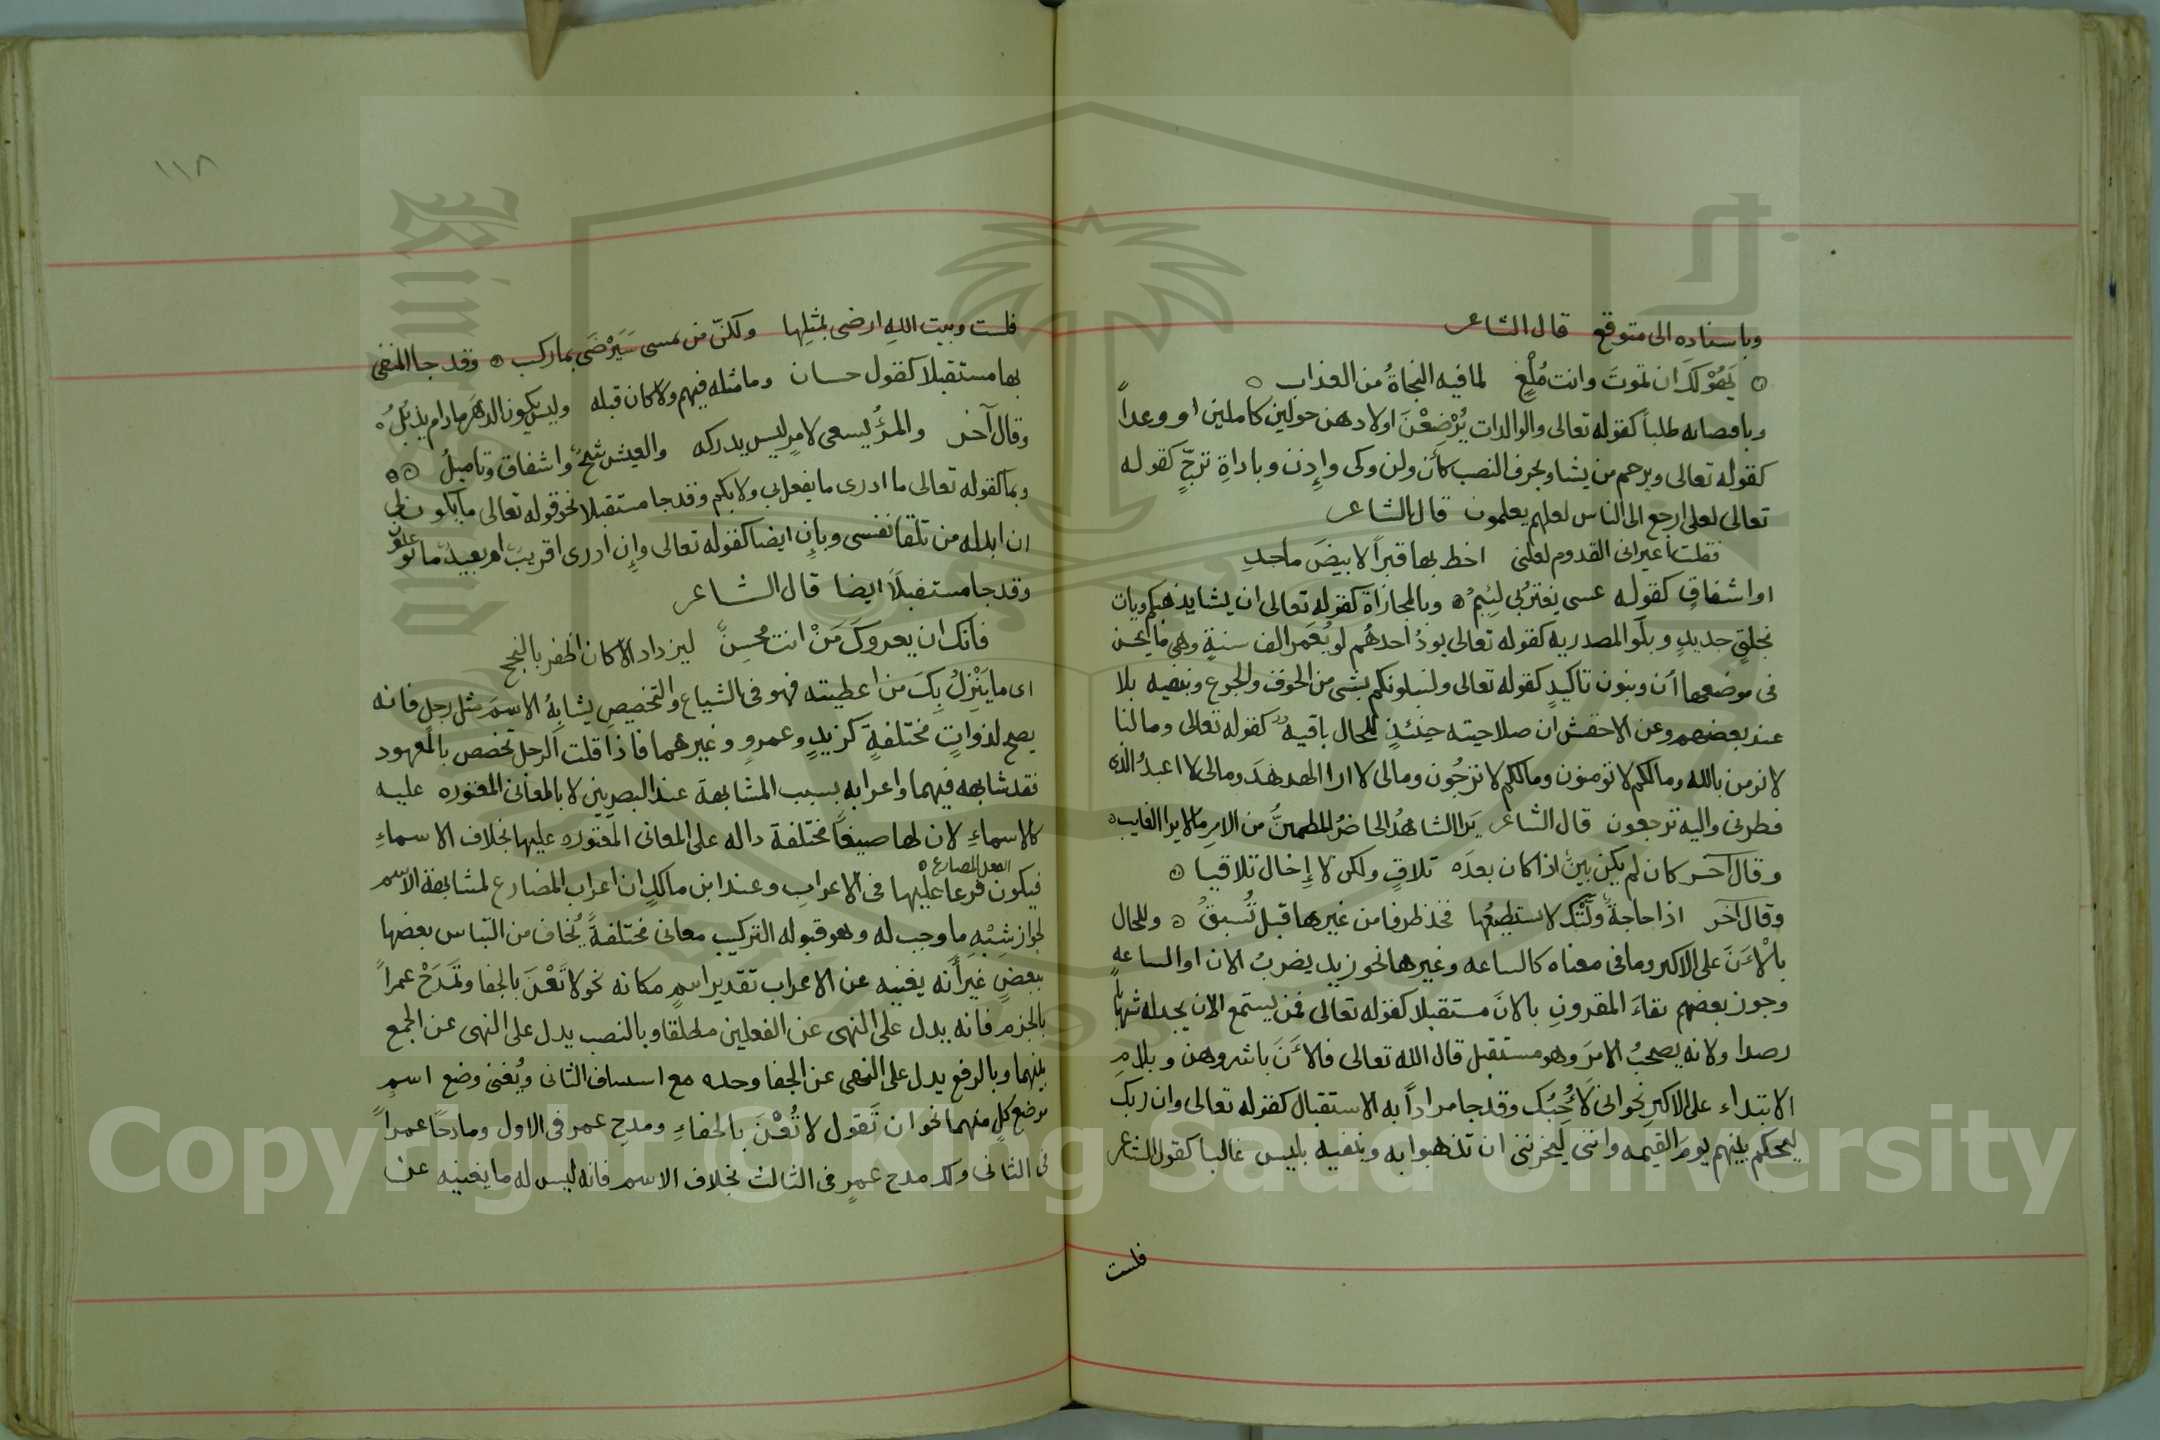 وباسناده الى متوقع قال الشاعر
يَهُوْلك ان تموت وانت مُلْغٍ لما فيه النجاةُ من العذاب
وباقتضائه طلباً كقوله تعالى والوالدات يُرْضِعْنَ اولادهن حولين كاملين او وعداً
كقوله تعالى ويرحم من يشا وبحرف النصب كأن ولن وكى وإذن وباداةِ ترجٍّ كقوله
تعالى لعلى ارجع الى الناس لعلهم يعلمون قال الشاعر
فقلت اعيرانى القدوم لعلنى اخط بها قبراً لابيضَ ماجدِ
او اشفاقٍ كقوله عسى يغتربى لئيمُ وبالمجازاة كقوله تعالى ان يشا يذهبكم ويات
بخلقٍ جديدٍ وبلَو المصدريه كقوله تعالى يودُ احدهُم لو يُعَمر الف سنةٍ وهى ما يحسن
فى موضعها اَن وبنون تاكيدٍ كقوله تعالى ولنبلونكم بشى من الخوف والجوع وبنفيه بلا
عند بعضهم وعن الاخفش ان صلاحيته حينئذٍ للحال باقيه كقوله تعالى وما لنا
لا نومن بالله وما لكم لا تومنون وما لكم لا ترجُون ومالى لا ارا الهدهدَ ومالى لا اعبدُ الذى
فطرنى واليه ترجعون قال الشاعر يَرا الشاهدُ الحاضرُ المطمئنُّ من الامرِ ما لا يرا الغايب
وقال آخر كان لم يكن بينٌ اذا كان بعدَه تلاقٍ ولكن لا إخال تلاقيا
وقال آخر اذا حاجةٌ ولَّتْك لا تستطيعُها فخذ طرفا من غيرها قبلُ تُسبقُ وللحال
بالْآنَ على الاكبر وما فى معناه كالساعه وغيرها نحو زيد يضربُ الان او الساعه
وجوز بعضهم بقاءَ المقرونِ بالانَ مستقبلا كقوله تعالى فمن يستمع الان يجد له شهاباً
رصدا ولانه يصحبُ الامرَ وهو مستقبل قال الله تعالى فالآنَ باشروهن وبلامِ
الابتداء على الاكبرِ نحو انى لَأُحِبُك وقد جا مراداً به الاستقبال كقوله تعالى وان ربك
ليحكم بينهم يومَ القيمه واننى ليحزننى ان تذهبوا به وبنفيه بليس غالبا كقول الشاعر
فلست
١١٨
فلست وبيت اللهِ ارضى بمثلِها ولكنّ من يمسى سَيَرْضَى بما ركب وقد جا المنفى
بها مستقبلا كقول حسان وما مثله فيهم ولا كان قبله وليس يكون الدهرَ ما دام يذبُلُ
وقال آخر والمرُ يسعى لامرٍ ليس يدركه والعيش شحٌ واشفاق وتاميلُ
وبما كقوله تعالى ما ادرى ما يفعل بى ولا بكم وقد جا مستقبلا نحو قوله تعالى ما يكون لى
ان ابدله من تلقا نفسى وبإن ايضا كقوله تعالى وإن ادرى اقريبٌ ام بعيدٌ ما توعدون
وقد جا مستقبلاً ايضا قال الشاعر
فانك ان يعروكَ مَنْ انت مُحسِنٌ ليزداد الا كان اظفر بالنجح
اى ما يَنْزِلُ بِكَ من اعطيته فهو فى الشياع والتخصيصِ يشابهُ الاسمَ مثل رجلٍ فانه
يصح لذواتٍ مختلفةٍ كزيدٍ وعمروٍ وغيرهما فاذا قلت الرجل تخصص بالمعهود
فقد شابهه فيهما واعرابه بسبب المشابهة عند البصريين لا بالمعانى المعتوره عليه
كالاسماءِ لان لها صيغاً مختلفة داله على المعانى المعتوره عليها بخلاف الاسماءِ
الفعل المضارع
فيكون فرعا عليها فى الاعرابِ وعند ابن مالكٍ ان اعراب المضارع لمشابهة الاسم
لجواز شِبْهِ ما وجب له وهو قبوله التركيب معانى مختلفةً يُخاف من التباس بعضها
ببعضٍ غيرَ أنه يغنيه عن الاعراب تقدير اسمٍ مكانه نحو لا تَعْنَ بالجفا وتمدَحْ عمراً
بالجزم فانه يدل على النهى عن الفعلين مطلقا وبالنصب يدل على النهى عن الجمع
بينهما وبالرفع يدل على النهى عن الجفا وحده مع استيناف الثانى ويُغنى وضع اسمٍ
موضع كلٍ منهما نحو ان تَقول لا تُعْنَ بالجفاءِ ومدحِ عمرٍ فى الاول ومادحًا عمراً
فى الثانى ولك مدح عمرٍ فى الثالث بخلاف الاسم فانه ليس له ما يغنيه عن